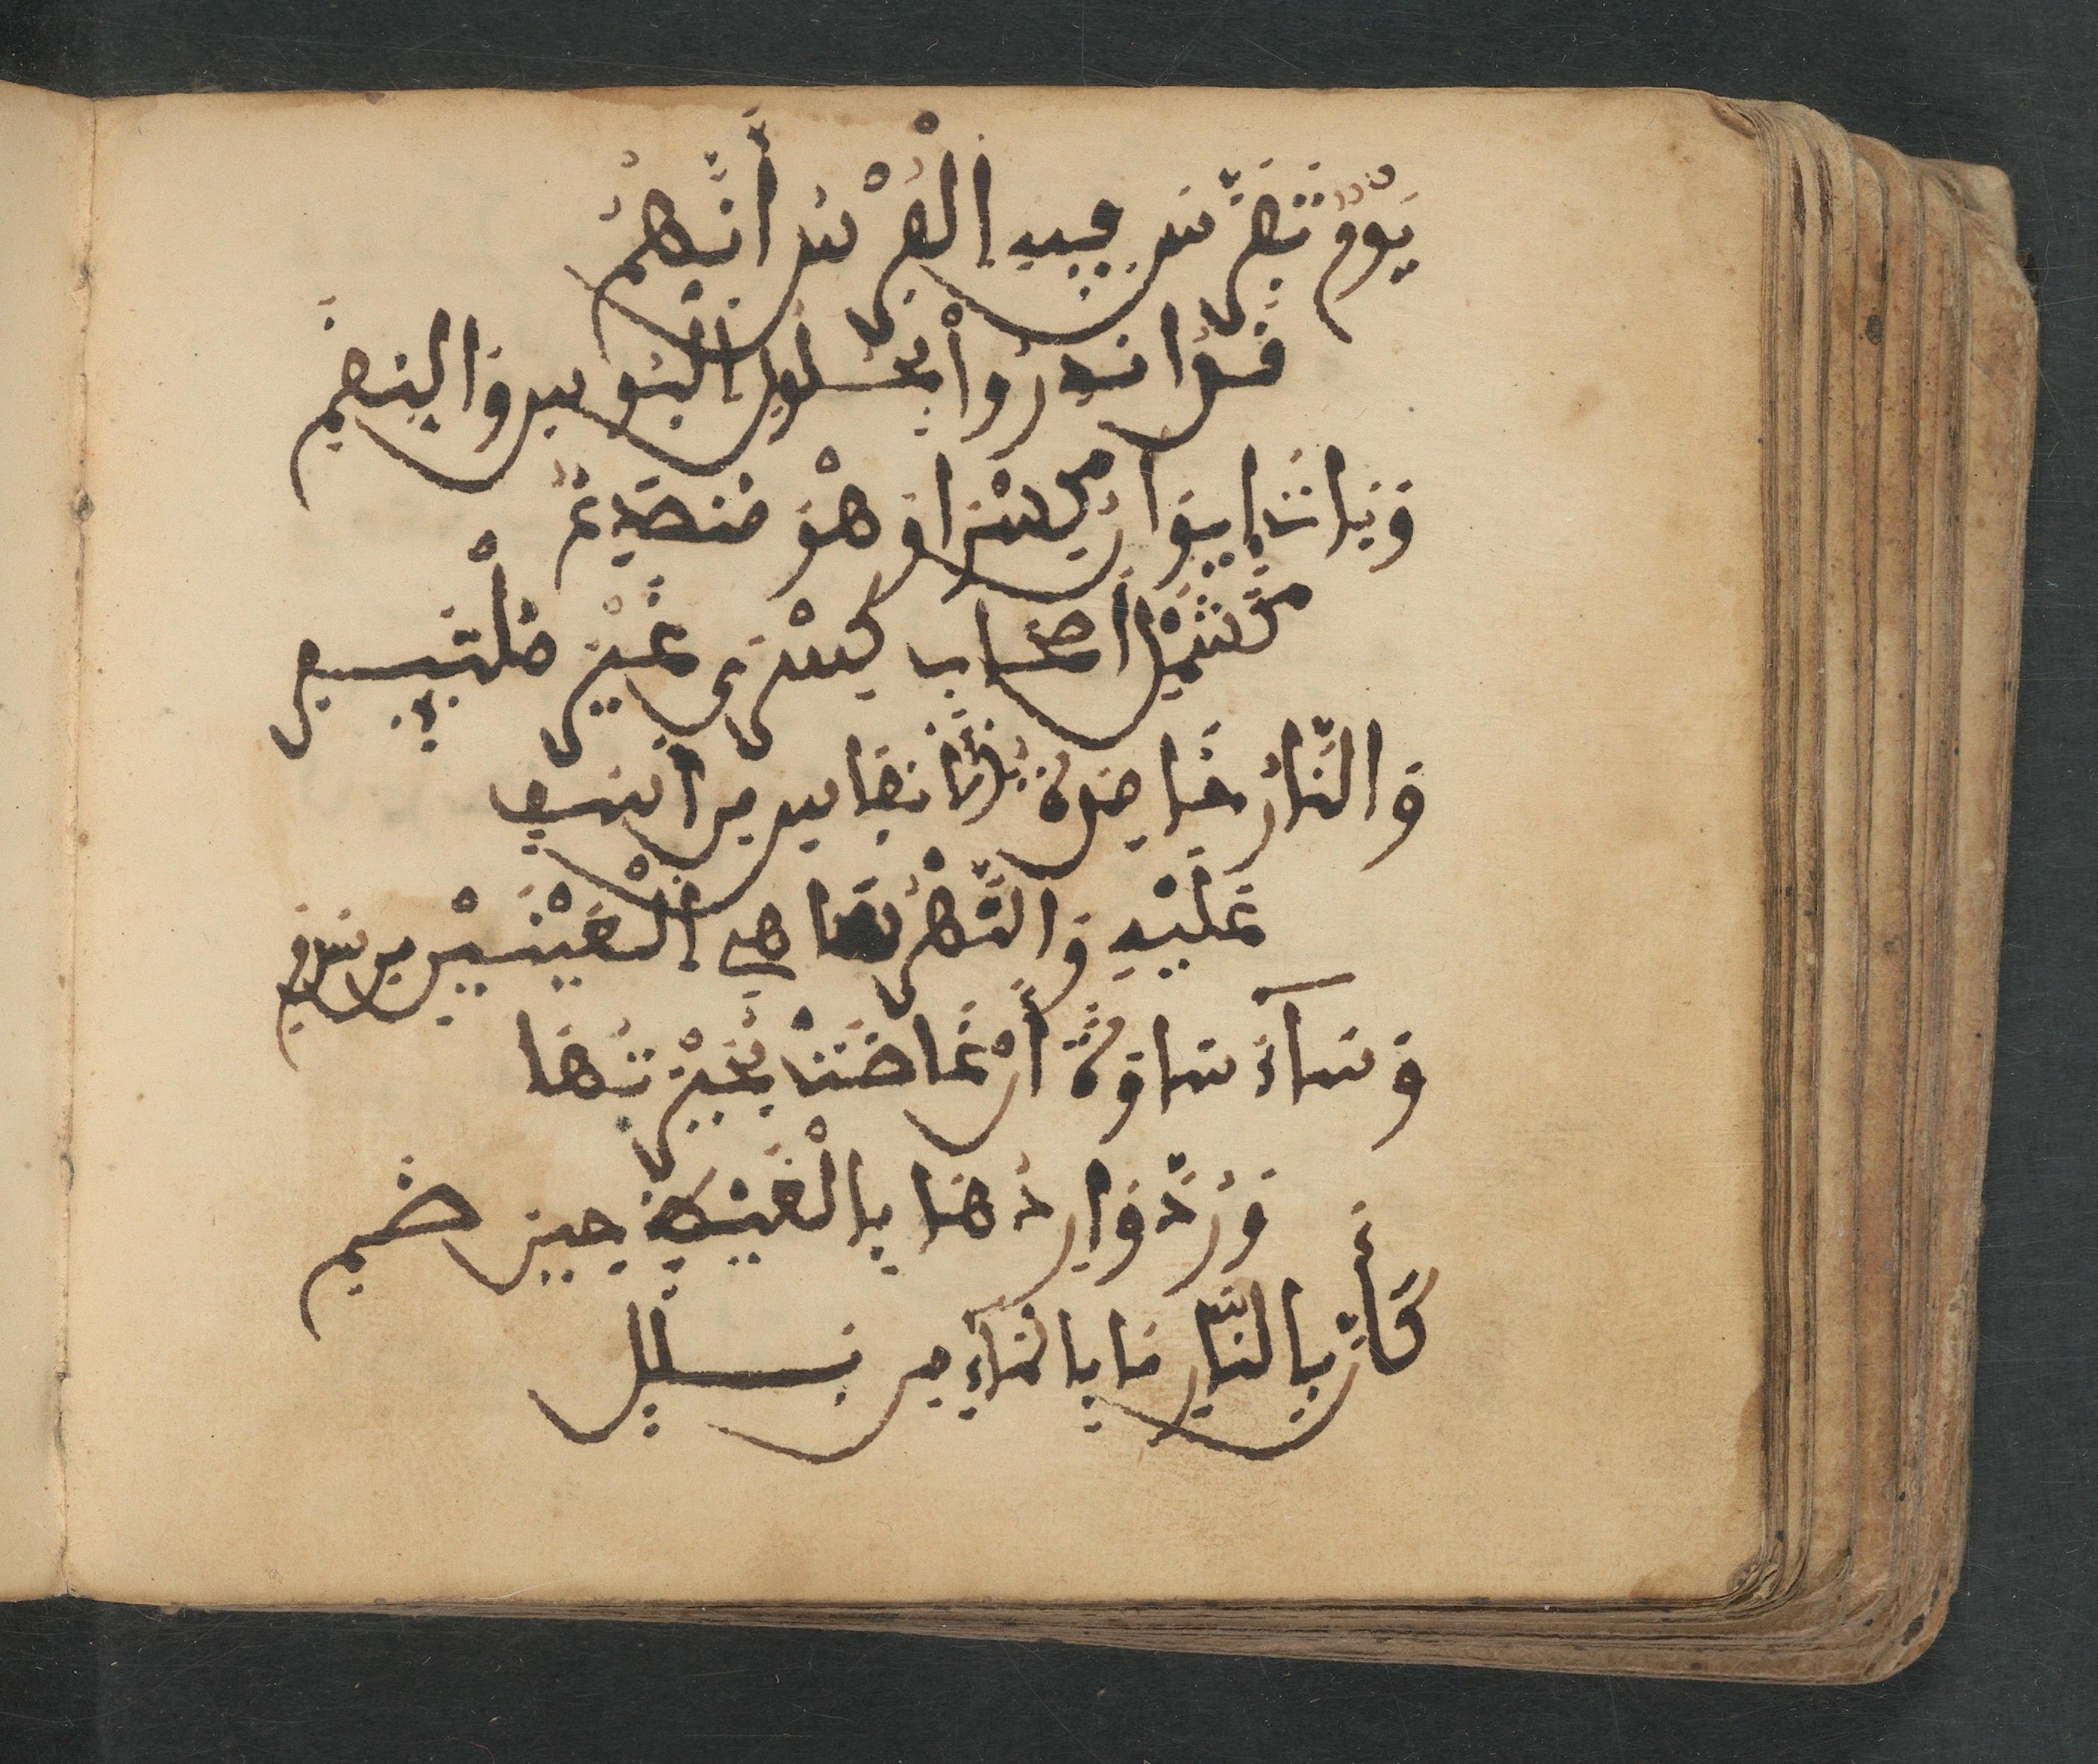 يَوْمٌ تَفَرَّسَ فِيهِ الْفُرْسُ أَنَّهُمُ
قَدْ أُنْذِرُوا بِحُلُولِ الْبُوسِ وَالنِّقَمِ
وَبَاتَ إِيوَانُ كِسْرَى وَهْوَ مُنْصَدِعٌ
كَشَمْلِ أَصْحَابِ كِسْرَى غَيْرَ مُلْتَيِمِ
وَالنَّارُ خَامِدَةُ الْأَنْفَاسِ مِنْ أَسَفٍ
عَلَيْهِ وَالنَّهْرُ سَاهِي الْعَيْنِ مِنْ سَدَمِ
وَسَآءَ سَاوَةَ أَنْ غَاضَتْ بُحَيْرَتُهَا
وَرُدَّ وَارِدُهَا بِالْغَيْظِ حِينَ ظَمِ
كَأَنَّ بِالنَّارِ مَا بِالْمَآءِ مِنْ بَلَلٍ